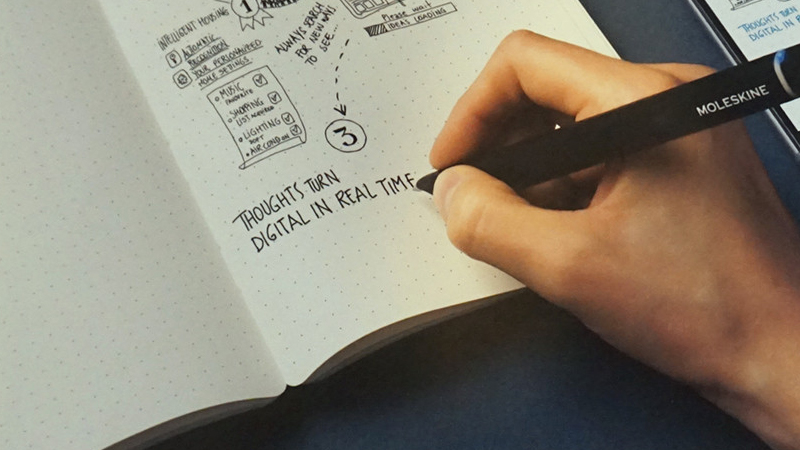 INTELLIGENT MORNING
1
AUTOMATIC
RECOGNITION
YOUR PERSONALIZED
HOME SETTINGS
MUSIC
FAVOURITE
SHOPPING
LIST
LIGHTING
SOFT
AIR COND ON
ALWAYS SEARCH
FOR NEW WAYS
TO SEE...
Please wait
IDEAS LOADING
3
THOUGHTS TURN
DIGITAL IN REAL TIME
MOLESKINE
THOUGHTS TURN
DIGITAL IN REAL